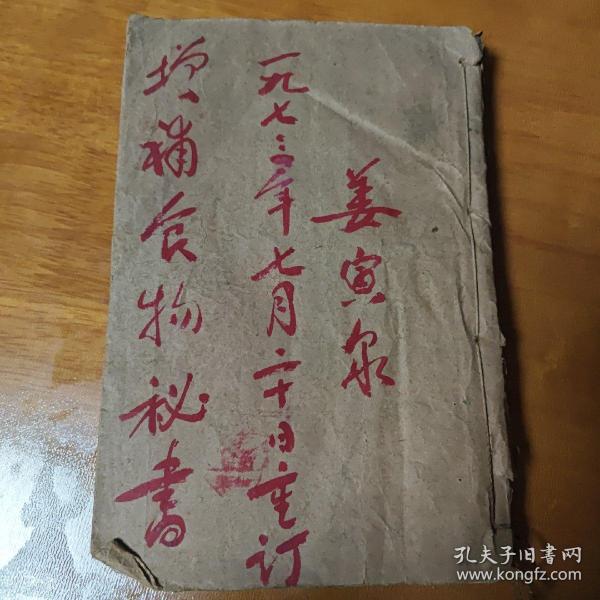 姜寅泉
一九七三年七月二十日重订
增补食物秘书
孔夫子旧书网
www.kongfz.com